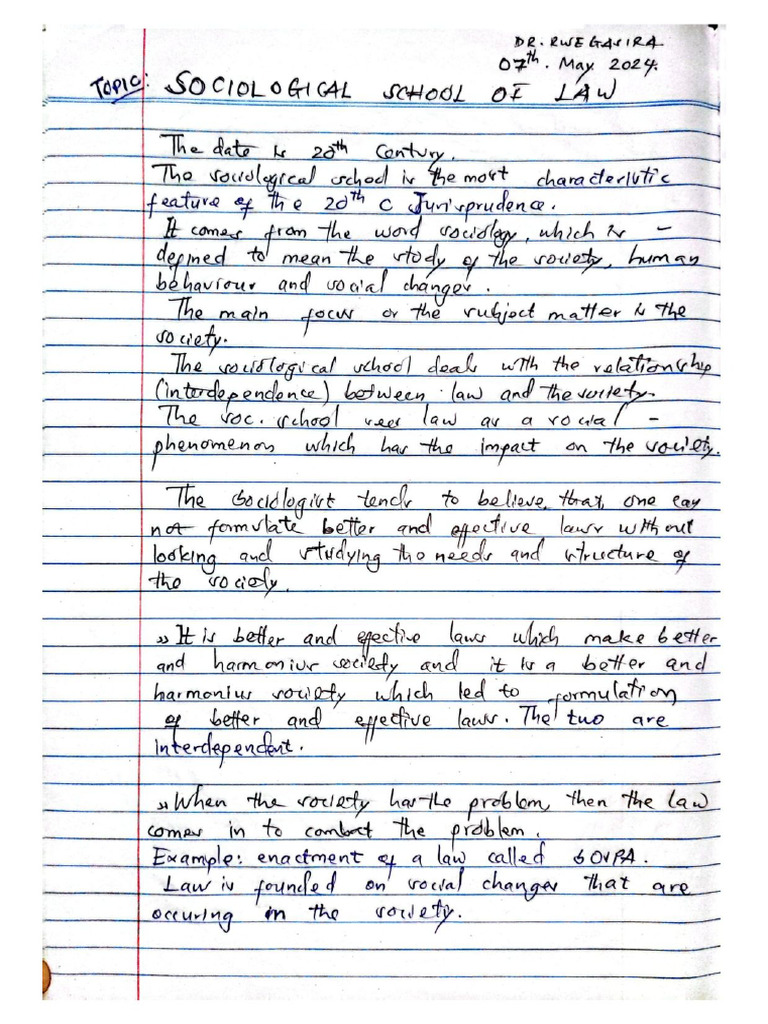 DR. RWEGASIRA
07th. May. 2024.
TOPIC: SOCIOLOGICAL SCHOOL OF LAW
The date is 20th Century.
The sociological school is the most characteristic
feature of the 20th C Jurisprudence.
It comes from the word sociology, which is -
defined to mean the study of the society, human
behaviour and social changes.
The main focus or the subject matter is the
society.
The sociological school deals with the relationship
(interdependence) between law and the society.
The soc. school sees law as a social -
phenomenon which has the impact on the society.
The Sociologist tends to believe that, one can
not formulate better and effective laws without
looking and studying the needs and structure of
the society.
» It is better and effective laws which make better
and harmonius society and it is a better and
harmonius society which led to formulation
of better and effective laws. The two are
interdependent.
» When the society has the problem, then the law
comes in to combat the problem.
Example: enactment of a law called SOSPA.
Law is founded on social changes that are
occuring in the society.